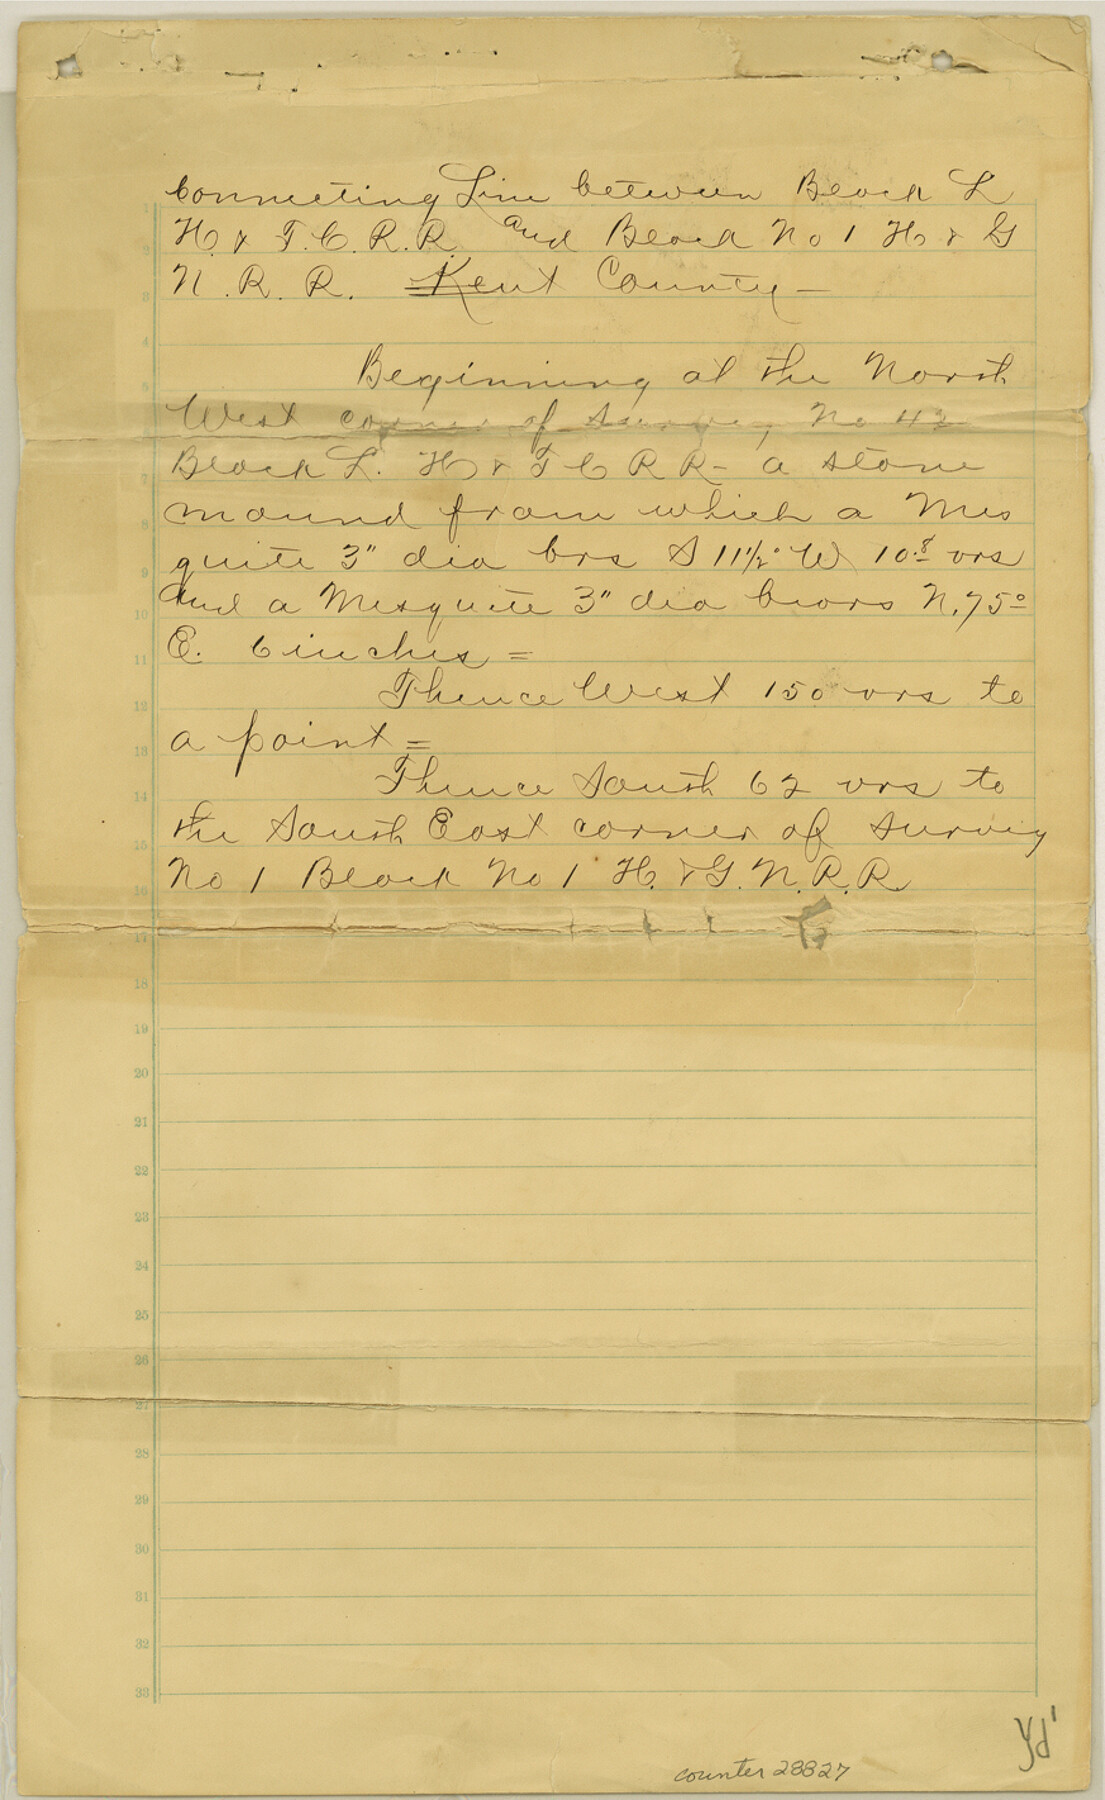 Connecting Line between Block L
H. & T. C. R. R. and Block No 1 H & G
N. R. R. Kent County –
Beginning at the North
West corner of Survey No 42
Block L. H & T C R R – a stone
mound from which a Mes
quite 3" dia brs S 11½° W 10.8 vrs
and a Mesquite 3" dia bears N. 75°
E. 6 inches =
Thence West 150 vrs to
a point =
Thence South 62 vrs to
the South East corner of survey
No 1 Block No 1 H. & G. N. R. R.
1
2
3
4
5
6
7
8
9
10
11
12
13
14
15
16
17
18
19
20
21
22
23
24
25
26
27
28
29
30
31
32
33
counter 28827